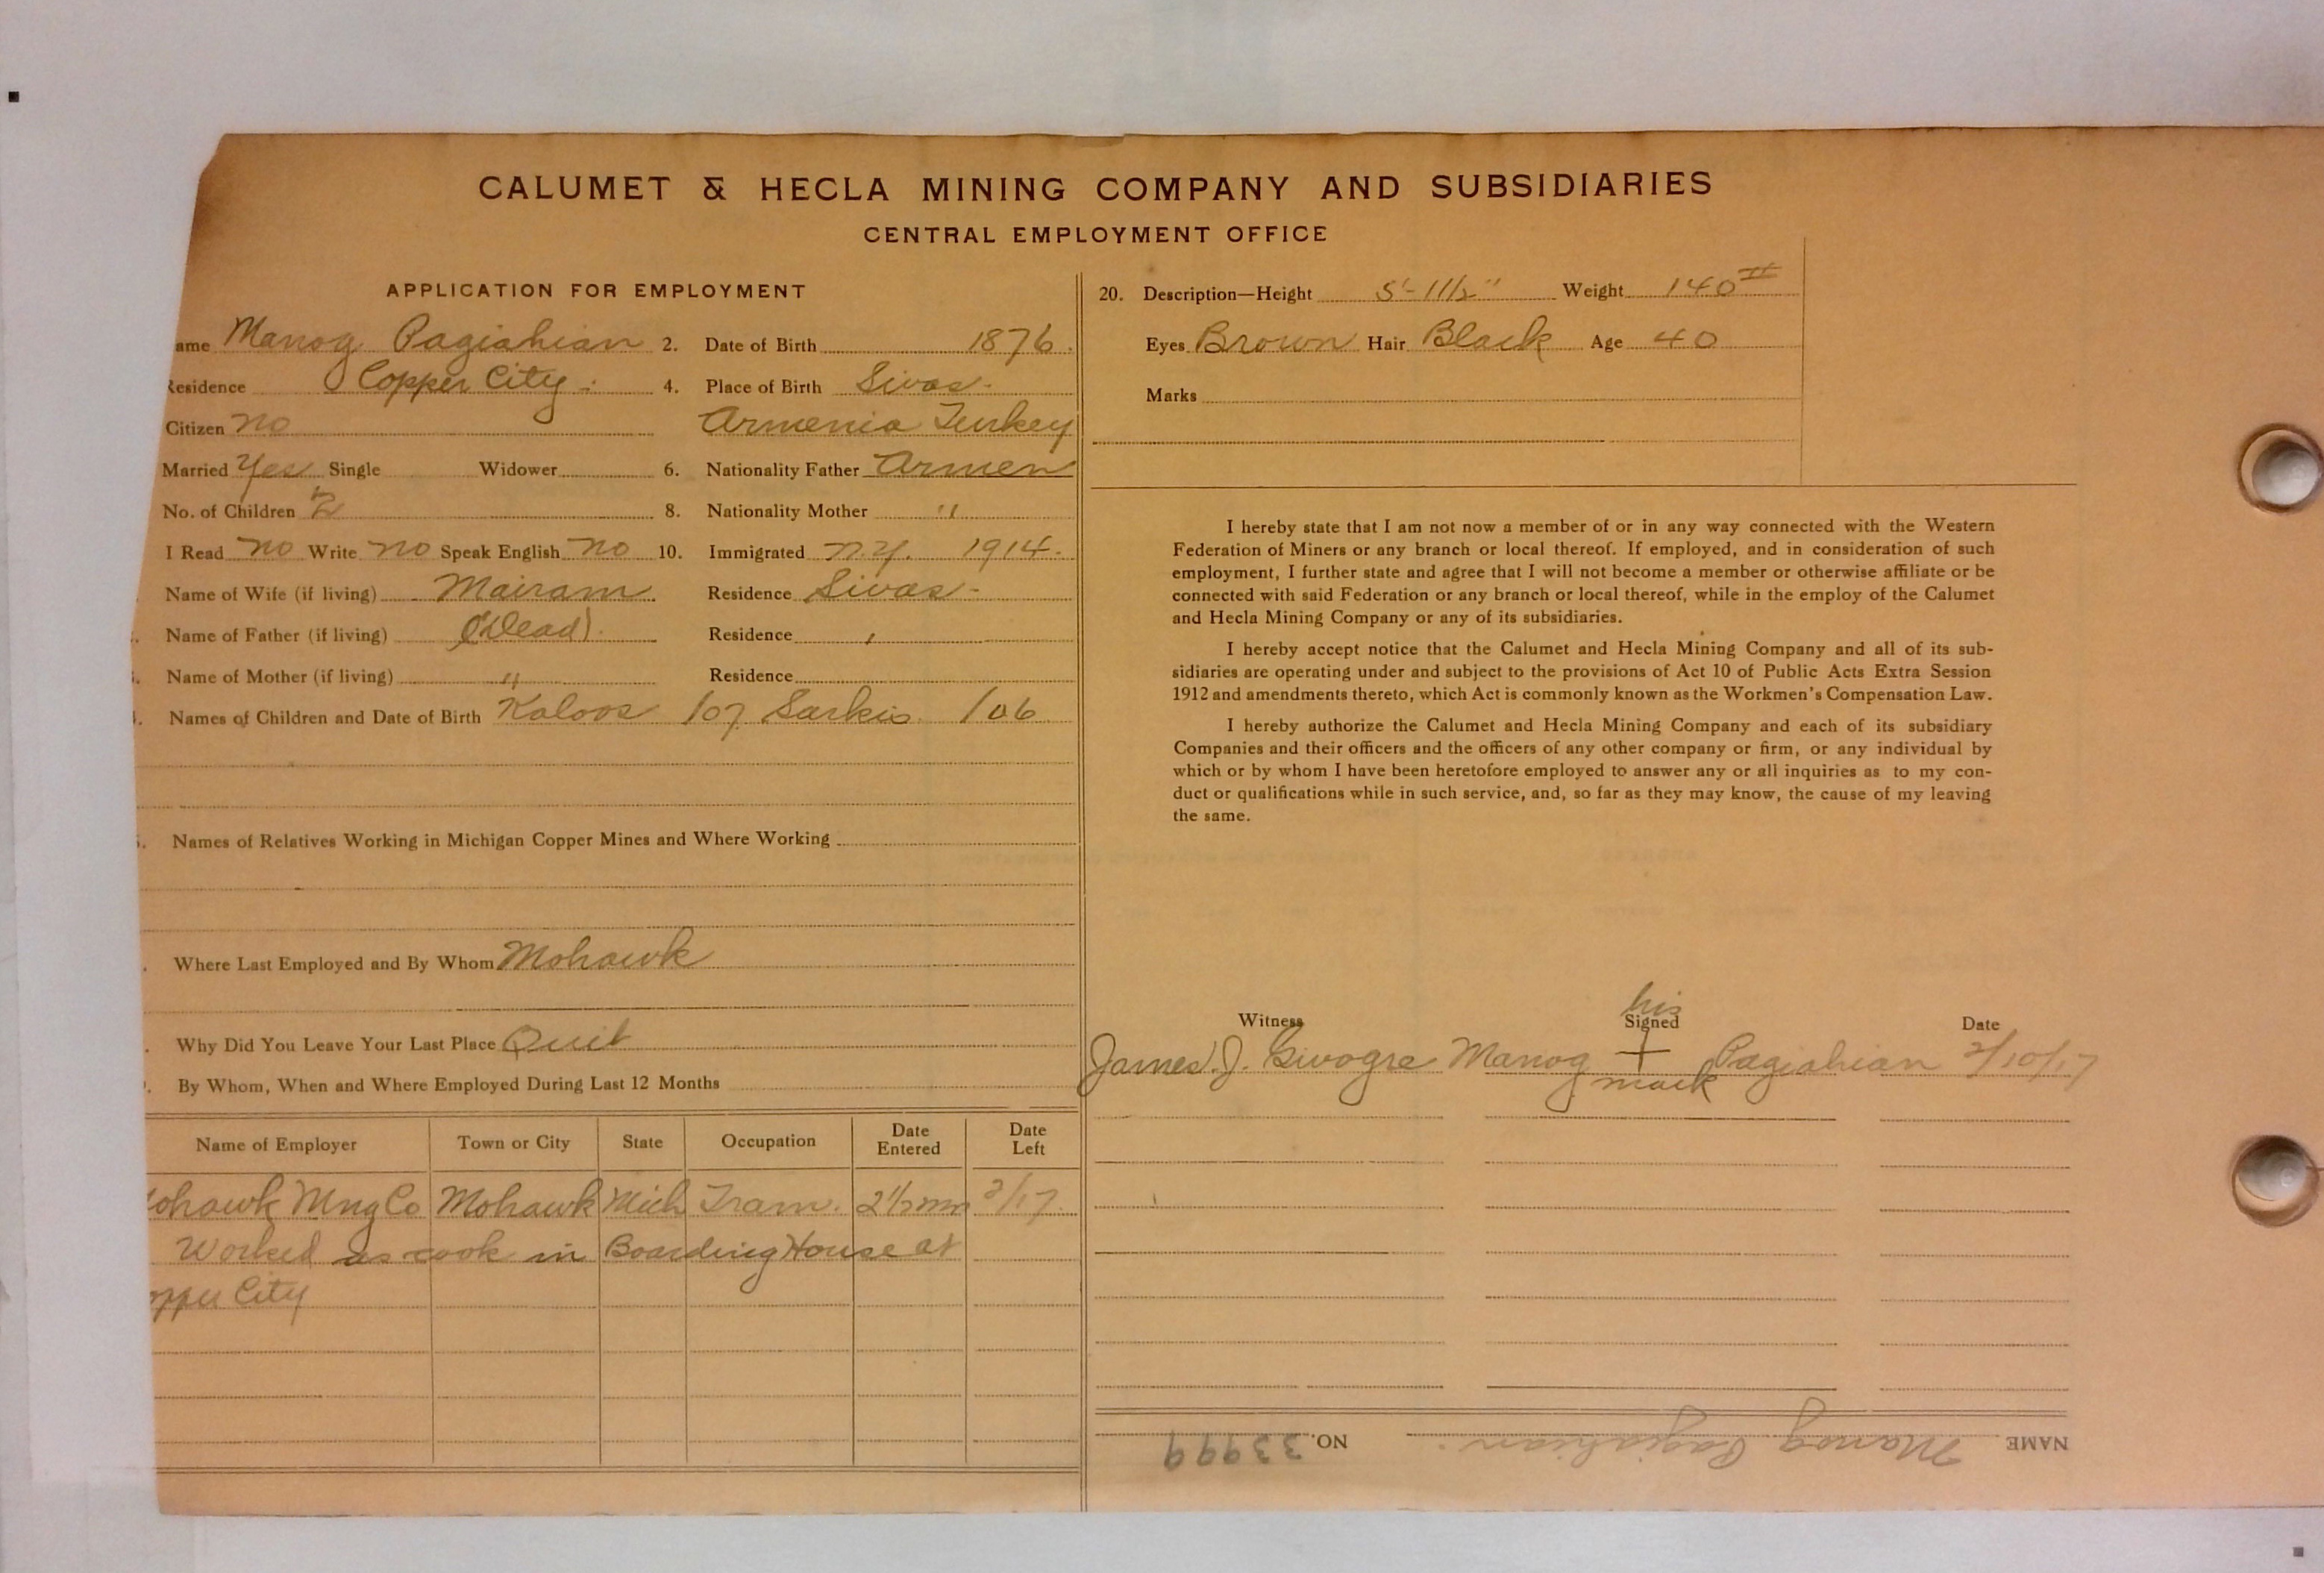 CALUMET & HECLA MINING COMPANY AND SUBSIDIARIES
CENTRAL EMPLOYMENT OFFICE
APPLICATION FOR EMPLOYMENT
ame Manog Pagiahian 2. Date of Birth 1876.
Residence Copper City. 4. Place of Birth Sivas.
Citizen no Armenia Turkey
Married Yes Single Widower 6. Nationality Father Armen
No. of Children 2 8. Nationality Mother "
I Read no Write no Speak English no 10. Immigrated N.Y. 1914.
Name of Wife (if living) Mairam Residence Sivas-
Name of Father (if living) (Dead). Residence
Name of Mother (if living) " Residence
Names of Children and Date of Birth Kaloos 107 Sarkis 106
Names of Relatives Working in Michigan Copper Mines and Where Working
Where Last Employed and By Whom Mohawk
Why Did You Leave Your Last Place Quit
By Whom, When and Where Employed During Last 12 Months
Name of Employer Town or City State Occupation Date Entered Date Left
ohawk Mng Co Mohawk Mich Tram. 2 1/2 mn 2/17.
Worked as cook in Boarding House at
opper City
20. Description—Height 5'-11/2" Weight 140#
Eyes Brown Hair Black Age 40
Marks
I hereby state that I am not now a member of or in any way connected with the Western
Federation of Miners or any branch or local thereof. If employed, and in consideration of such
employment, I further state and agree that I will not become a member or otherwise affiliate or be
connected with said Federation or any branch or local thereof, while in the employ of the Calumet
and Hecla Mining Company or any of its subsidiaries.
I hereby accept notice that the Calumet and Hecla Mining Company and all of its sub-
sidiaries are operating under and subject to the provisions of Act 10 of Public Acts Extra Session
1912 and amendments thereto, which Act is commonly known as the Workmen's Compensation Law.
I hereby authorize the Calumet and Hecla Mining Company and each of its subsidiary
Companies and their officers and the officers of any other company or firm, or any individual by
which or by whom I have been heretofore employed to answer any or all inquiries as to my con-
duct or qualifications while in such service, and, so far as they may know, the cause of my leaving
the same.
his
Witness Signed Date
James J. Manog + Pagiahian 2/10/17
mark
NAME Manog Pagiahian. NO. 33999